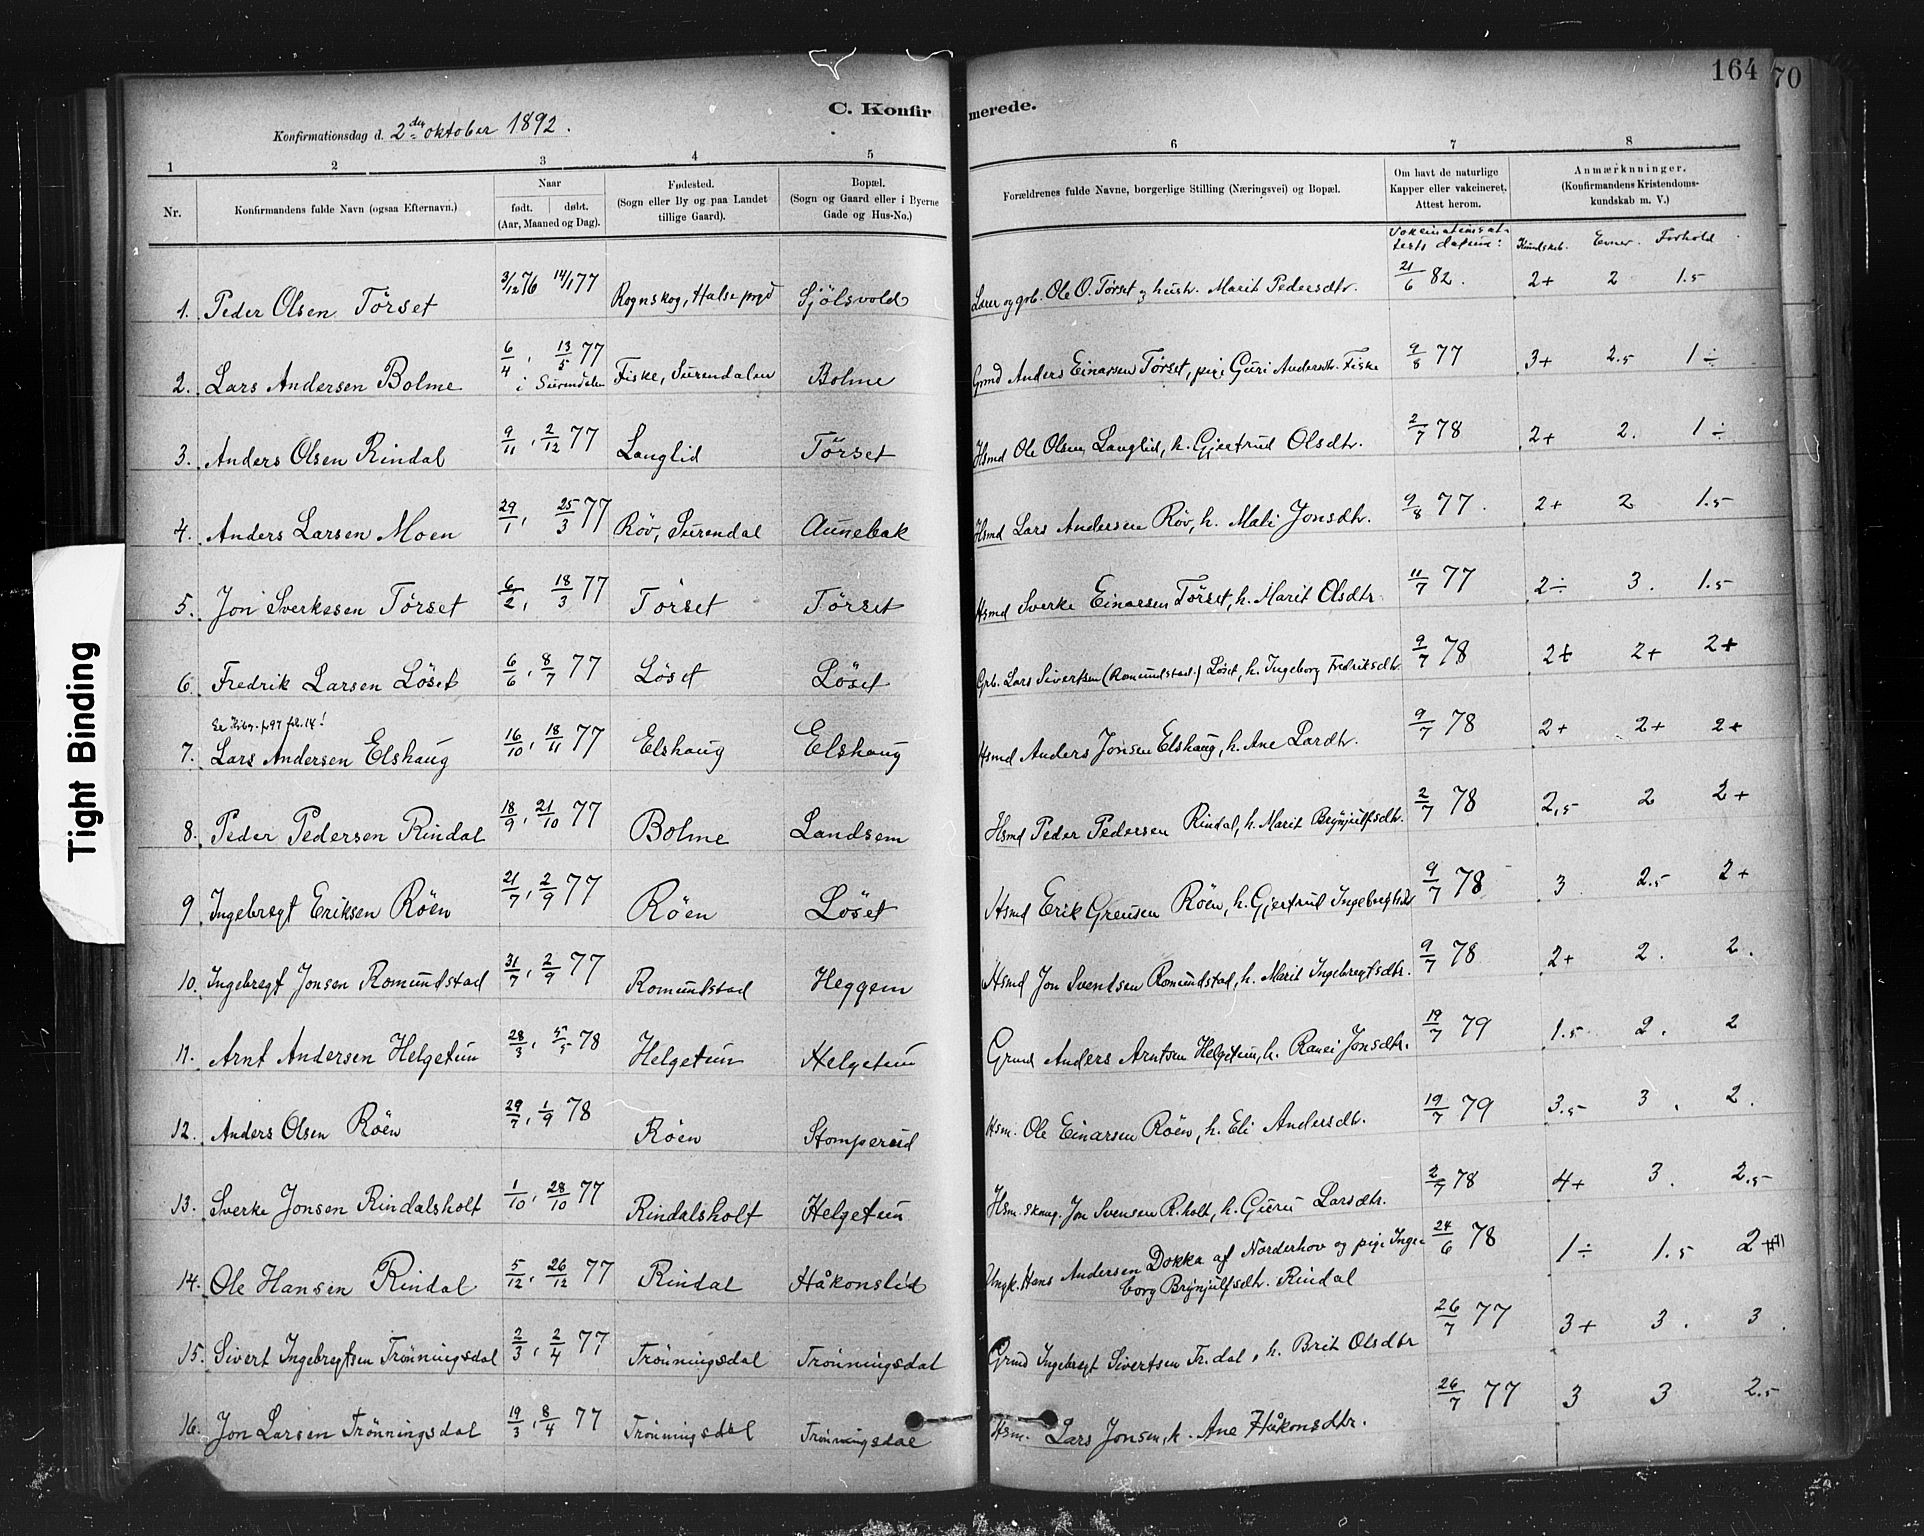 164
70
C. Konfirmerede.
Konfirmationsdag d. 2den oktober 1892.
1 2 3 4 5 6 7 8
Nr.
Konfirmandens fulde Navn (ogsaa Efternavn.)
Naar
født. døbt.
(Aar, Maaned og Dag).
Fødested.
(Sogn eller By og paa Landet
tillige Gaard).
Bopæl.
(Sogn og Gaard eller i Byerne
Gade og Hus-No.)
Forældrenes fulde Navne, borgerlige Stilling (Næringsvei) og Bopæl.
Om havt de naturlige
Kopper eller vakcineret.
Attest herom.
Anmærkninger.
(Konfirmandens Kristendoms-
kundskab m. V.)
Vakcinationsat-
tests datum:
Kundskab. Evner. Forhold
1. Peder Olsen Tørset 3/12 76 14/1 77 Rognskog, Halse prgd Sjölsvold Lærer og grb. Ole O. Tørset og hustr. Marit Pedersdtr. 21/6 82. 2+ 2 1.5
2. Lars Andersen Bolme 6/4, 13/5 77 i Surendalen Fiske, Surendalen Bolme Grmd Anders Einarsen Tørset, pige Guri Andersdtr. Fiske 9/8 77 3+ 2.5 1÷
3. Anders Olsen Rindal 9/11, 2/12 77 Langlid Tørset Hsmd Ole Olsen Langlid, h. Gjertrud Olsdtr. 2/7 78 2+ 2. 1÷
4. Anders Larsen Moen 29/1, 25/3 77 Röv, Surendal Aunebak Hsmd Lars Andersen Röv, h. Mali Jonsdtr. 9/8 77. 2+ 2 1.5
5. Jon Sverkesen Tørset 6/2, 18/3 77 Tørset Tørset Hsmd Sverke Einarsen Tørset, h. Marit Olsdtr. 11/7 77 2÷ 3. 1.5
6. Fredrik Larsen Löset 6/6, 8/7 77 Löset Löset Grb. Lars Sivertsen (Romundstad.) Löset, h. Ingeborg Fredriksdtr. 9/7 78 2+ 2+ 2+
7. Lars Andersen Elshaug 16/10, 18/11 77 Elshaug Elshaug Hsmd Anders Jonsen Elshaug, h. Ane Larsdtr. 9/7 78 2+ 2+ 2+
8. Peder Pedersen Rindal 18/9, 21/10 77 Bolme Landsem Hsmd Peder Pedersen Rindal, h. Marit Brynjulfsdtr. 2/7 78 2,5 2 2+
9. Ingebregt Eriksen Röen 21/7, 2/9 77 Röen Löset Hsmd Erik Greusen Röen, h. Gjertrud Ingebregtsdtr 9/7 78 3 2.5 2+
10. Ingebregt Jonsen Romundstad 31/7, 2/9 77 Romundstad Heggem Hsmd Jon Sventsen Romundstad, h. Marit Ingebregtsdtr. 9/7 78 2+ 2. 2.
11. Arnt Andersen Helgetun 28/3, 5/5 78 Helgetun Helgetun Grmd Anders Arntsen Helgetun, h. Ranei Jonsdtr. 19/7 79 1.5 2. 2
12. Anders Olsen Röen 29/7, 1/9 78 Röen Stomperud Hsm. Ole Einarsen Röen, h. Eli Andersdtr. 19/7 79 3.5 3. 2.
13. Sverke Jonsen Rindalsholt 1/10, 28/10 77 Rindalsholt Helgetun Hsm. skaug. Jon Svensen R.holt, h. Guru Larsdtr. 2/7 78 4+ 3. 2.5
14. Ole Hansen Rindal 5/12, 26/12 77 Rindal Håkonslid Ungk. Hans Andersen Dokka af Norderhov og pige Inge-
borg Brynjulfsdtr. Rindal 24/6 78 1÷ 1.5 2
15. Sivert Ingebregtsen Trönningsdal 2/3, 2/4 77 Trönningsdal Trönningsdal Grmd Ingebregt Sivertsen Tr.dal, h. Brit Olsdtr 26/7 77 3+ 3. 3.
16. Jon Larsen Trönningsdal 19/3, 8/4 77 Trönningsdal Trönningsdal Hsm. Lars Jonsen, h. Ane Håkonsdtr. 26/7 77 3 3 2.5
Tight Binding